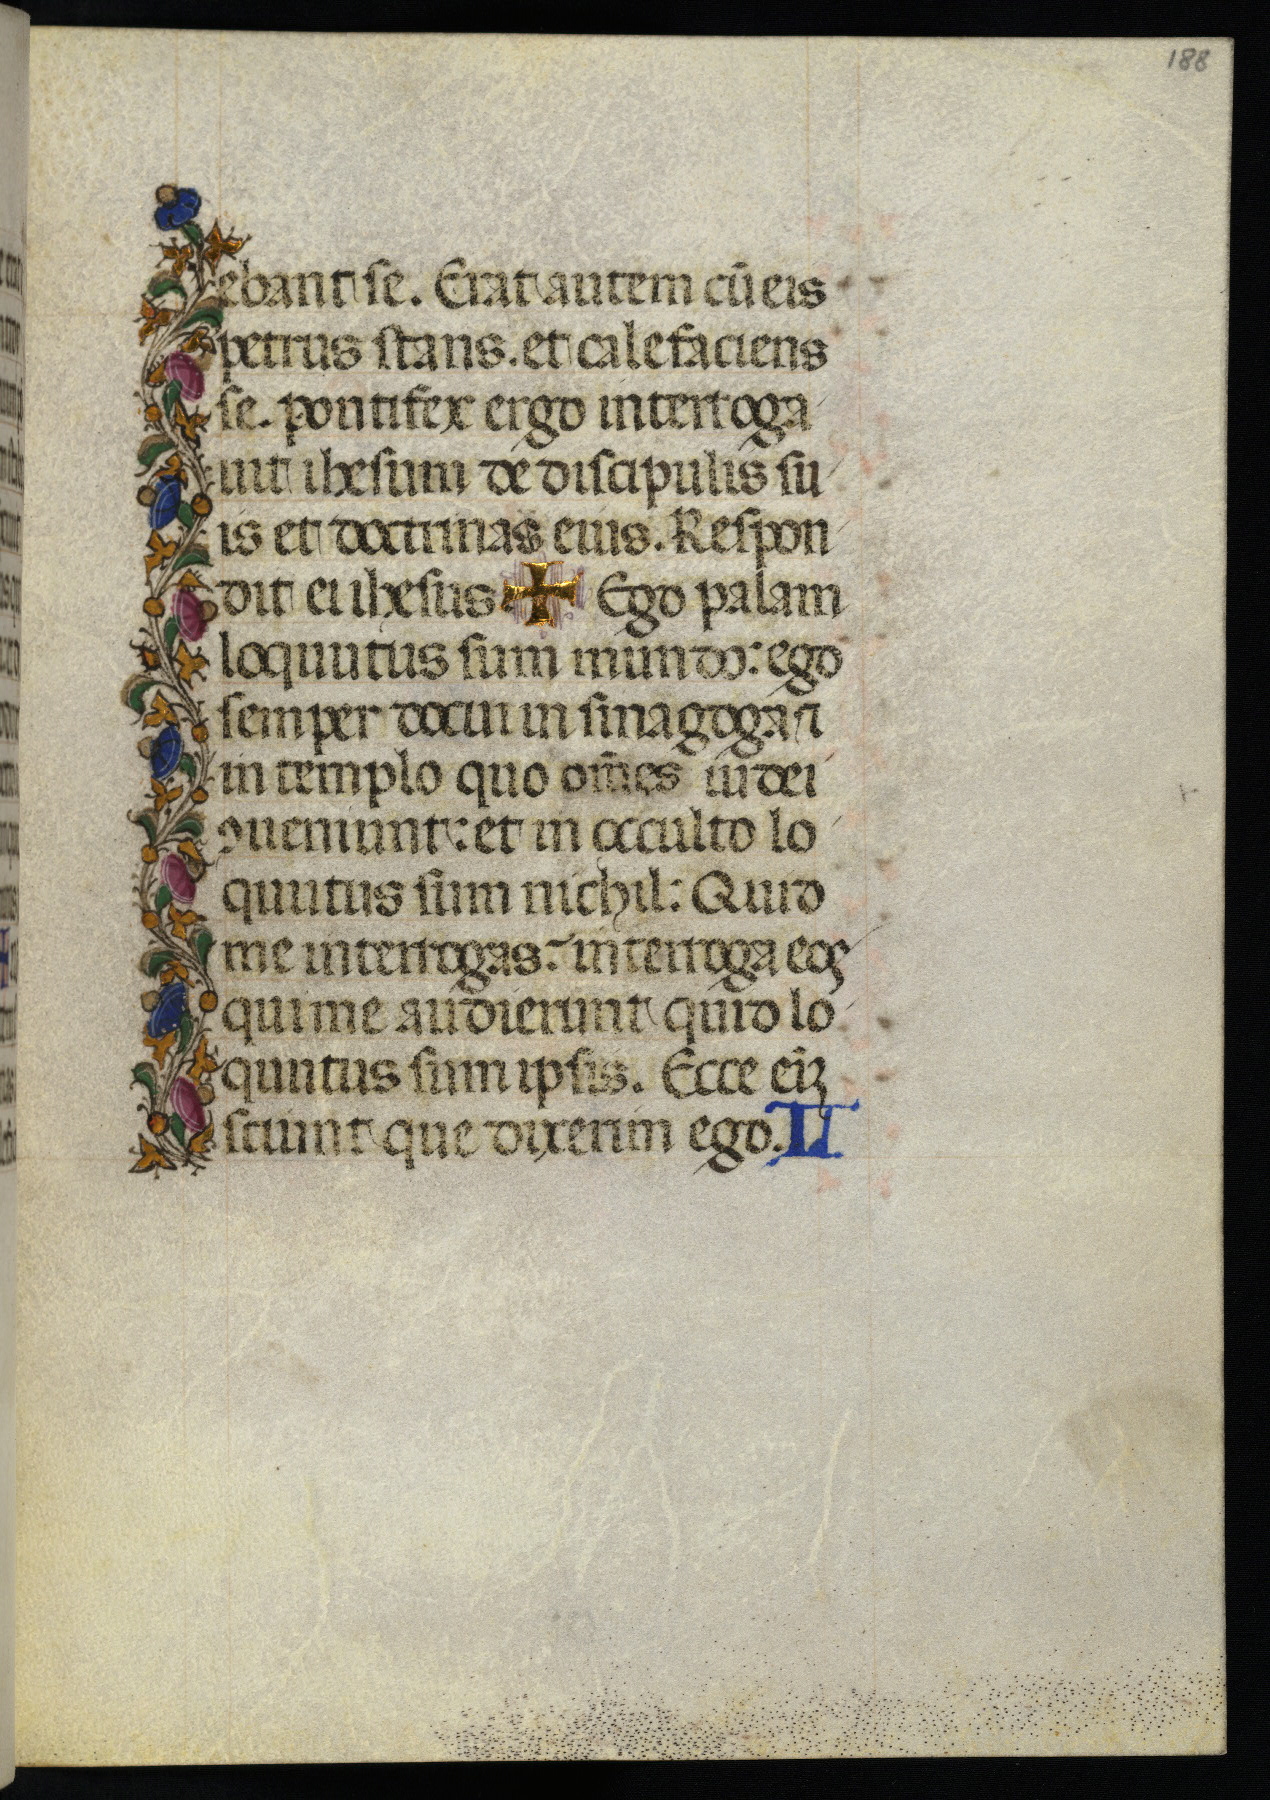 188
ebant se. Erat autem cū eis
petrus stans. et calefaciens
se. pontifex ergo interroga
uit ihesum de discipulis su
is et doctrinas eius. Respon
dit ei ihesus ✠ Ego palam
loquutus sum mundo: ego
semper docui in sinagoga ⁊
in templo quo om̄es iudei
ꝯueniunt: et in occulto lo
quutus sum nichil: Quid
me interrogas: interroga eos
qui me audierunt quid lo
quutus sum ipsis. Ecce eiꝫ
sciunt que dixerim ego. C